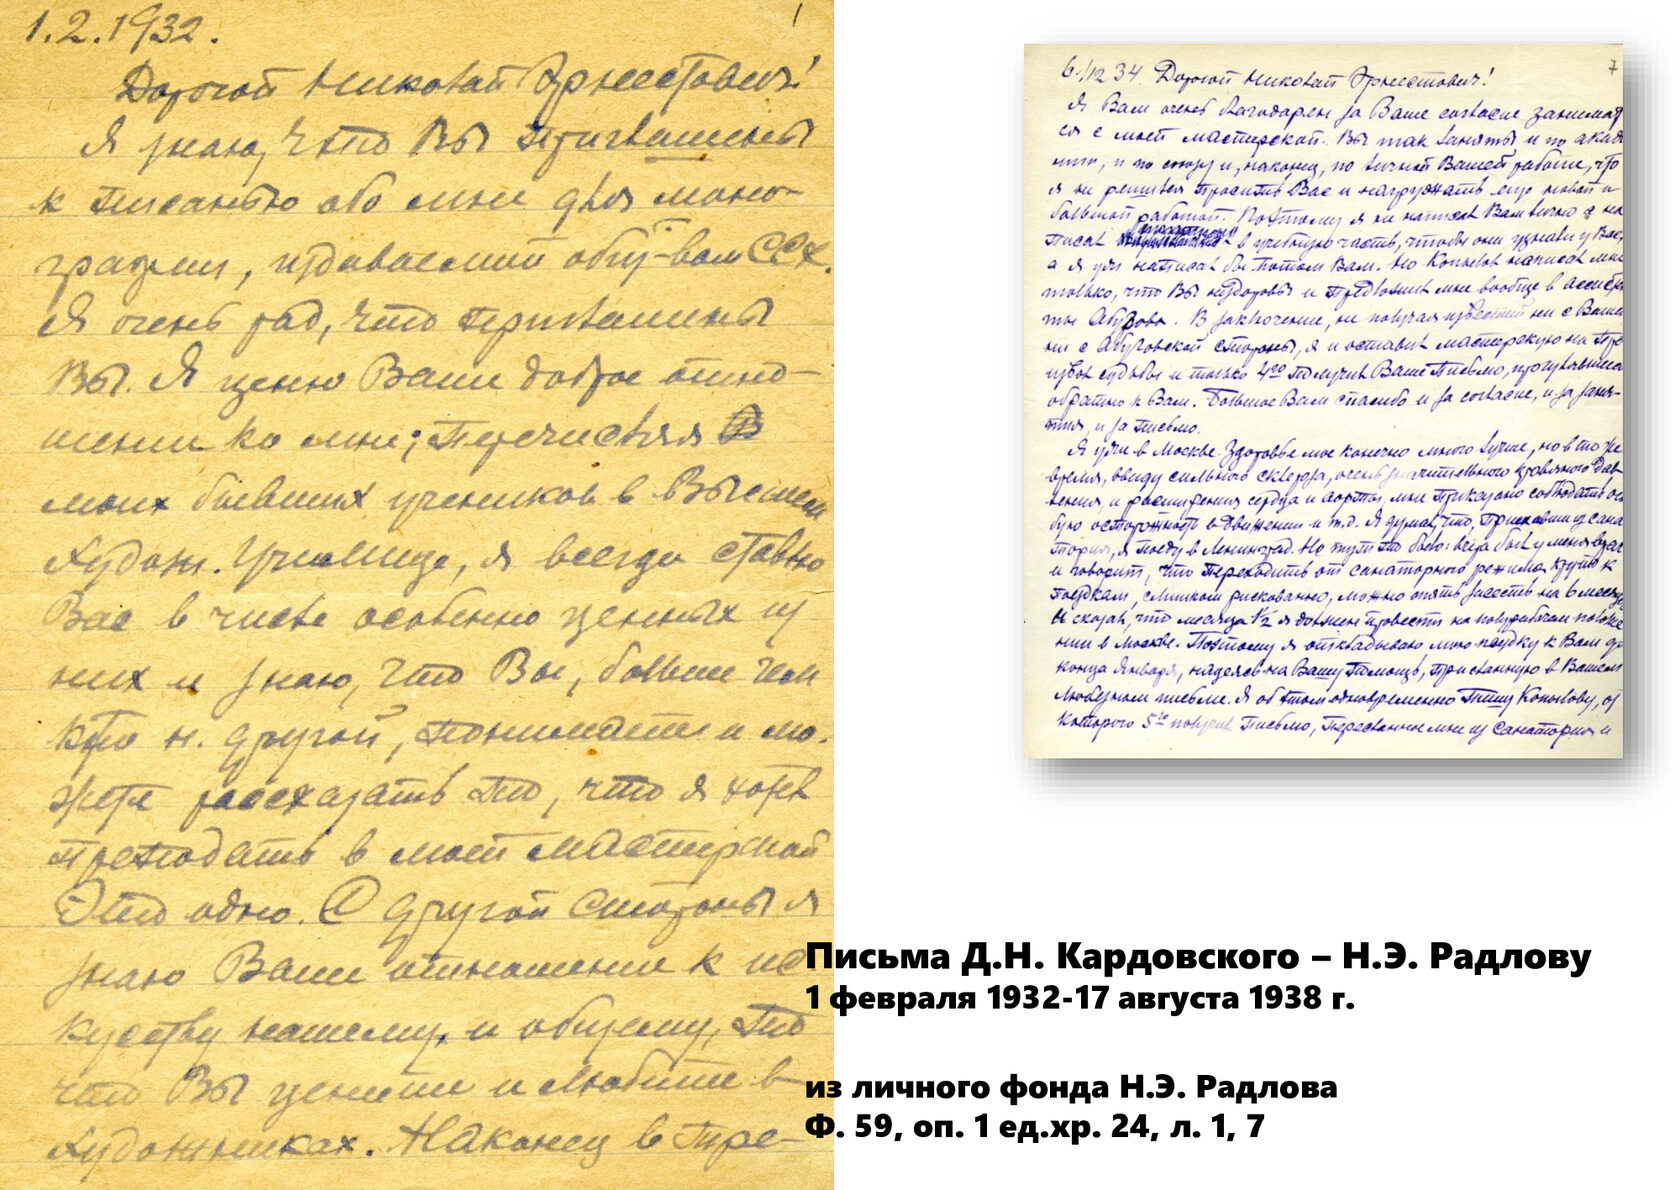 1.2.1932.
1
Дорогой Николай Эрнестович!
Я знаю, что Вы приглашены
к писанью обо мне для моно-
графии, издаваемой общ-вом ССХ.
Я очень рад, что приглашены
Вы. Я ценю Ваше доброе отно-
шение ко мне; перечисляя
моих бывших учеников в Высшем
Худож. Училище, я всегда ставлю
Вас в числе особенно ценных из
них и знаю, что Вы, больше чем
кто н. другой, понимаете и мо-
жете рассказать то, что я хотел
преподать в моей мастерской
Это одно. С другой стороны я
знаю Ваше отношение к ис
кусству нашему, и общему, то
что Вы цените и любите в
художниках. Наконец в пре-
6/12 34 Дорогой Николай Эрнестович!
7
Я Вам очень благодарен за Ваше согласие занимат
ся с моей мастерской. Вы так заняты и по акаде
мии, и по союзу и, наконец, по личной Вашей работе, что
я не решился просить Вас и нагружать еще новой и
большой работой. Поэтому я не написал Вам лично а на
писал в учебную часть, чтобы они узнали у Вас,
а я уже написал бы потом Вам. Но Копылов написал мне
только, что Вы нездоровы и предложил мне вообще в ассистен
ты Абугова. В заключение, не получая известий ни с Вашей
ни с Абуговской стороны, я и оставил мастерскую на про
извол судьбы и только 4го получил Ваше письмо, прогулявшееся
обратно к Вам. Большое Вам спасибо и за согласие, и за заня-
тия, и за письмо.
Я уже в Москве. Здоровье мое конечно много лучше, но в то же
время, ввиду сильного склероза, очень значительного кровяного дав
ления и расширения сердца и аорты мне приказано соблюдать осо
бую осторожность в движении и т.д. Я думал, что, приехавши из сана
тория, я поеду в Ленинград. Но тут то было: вчера был у меня врач
и говорит, что переходить от санаторного режима круто к
поездкам, слишком рискованно, можно опять засесть на 6 месяцев
и сказал, что месяца 1½ я должен провести на полурабочем положе
нии в Москве. Поэтому я откладываю мою поездку к Вам до
конца января, надеясь на Вашу помощь, присланную в Вашем
любезном письме. Я об этом одновременно пишу Копылову, от
которого 5го получил письмо, пересланное мне из санатория и
Письма Д.Н. Кардовского – Н.Э. Радлову
1 февраля 1932-17 августа 1938 г.
из личного фонда Н.Э. Радлова
Ф. 59, оп. 1 ед.хр. 24, л. 1, 7